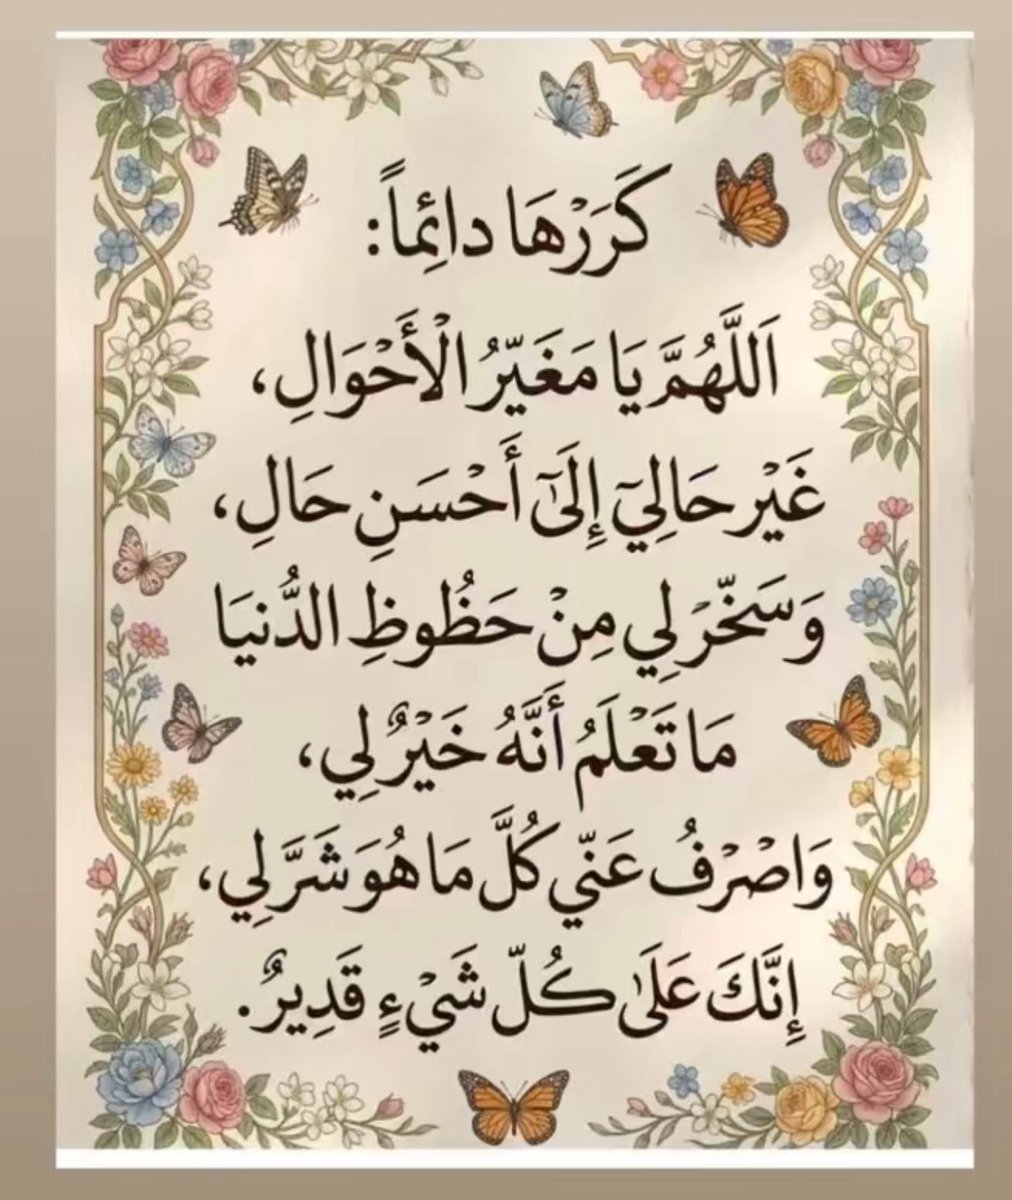 كَرَرْهَا دائِماً:
اَللَّهُمَّ يَا مَغَيّرُ الْأَحْوَالِ،
غَيْر حَالِيَ إِلَىٰ أَحْسَنِ حَالِ،
وَسَخّرْ لِي مِنْ حَظُوظِ الدُّنيَا
مَا تَعْلَمُ أَنَّهُ خَيْرٌ لِي،
وَاصْرْفُ عَنّي كُلَّ مَا هُوَ شَرَّ لِي،
إِنَّكَ عَلَىٰ كُلّ شَيْءٍ قَدِيرٌ.